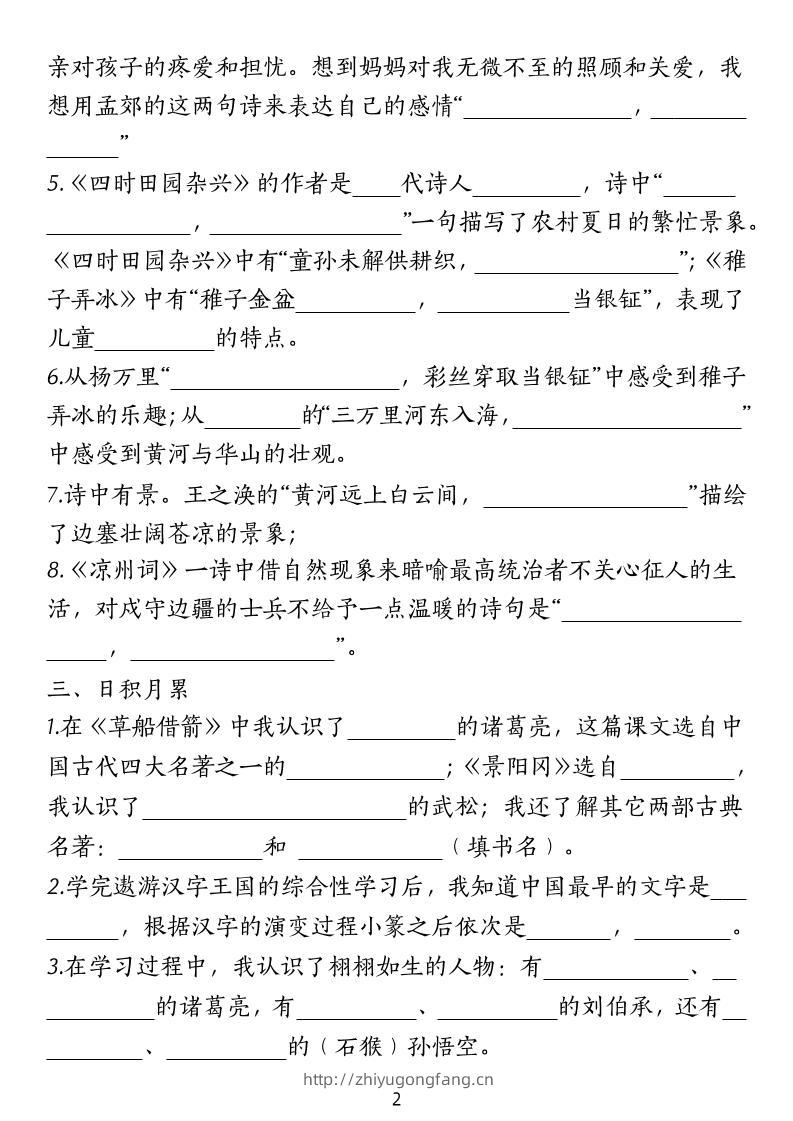 亲对孩子的疼爱和担忧。想到妈妈对我无微不至的照顾和关爱，我
想用孟郊的这两句诗来表达自己的感情“______________，________
______”
5.《四时田园杂兴》的作者是____代诗人_________，诗中“______
____________，________________”一句描写了农村夏日的繁忙景象。
《四时田园杂兴》中有“童孙未解供耕织，_________________”；《稚
子弄冰》中有“稚子金盆__________，___________当银钲”，表现了
儿童__________的特点。
6.从杨万里“___________________，彩丝穿取当银钲”中感受到稚子
弄冰的乐趣；从________的“三万里河东入海，___________________”
中感受到黄河与华山的壮观。
7.诗中有景。王之涣的“黄河远上白云间，_________________”描绘
了边塞壮阔苍凉的景象；
8.《凉州词》一诗中借自然现象来暗喻最高统治者不关心征人的生
活，对戍守边疆的士兵不给予一点温暖的诗句是“_______________
_____，_________________”。
三、日积月累
1.在《草船借箭》中我认识了_________的诸葛亮，这篇课文选自中
国古代四大名著之一的_____________；《景阳冈》选自_________，
我认识了______________________的武松；我还了解其它两部古典
名著：____________和 ____________（填书名）。
2.学完遨游汉字王国的综合性学习后，我知道中国最早的文字是___
______，根据汉字的演变过程小篆之后依次是_______，________。
3.在学习过程中，我认识了栩栩如生的人物：有____________、__
_________的诸葛亮，有__________、__________的刘伯承，还有__
________、__________的（石猴）孙悟空。
http://zhiyugongfang.cn
2